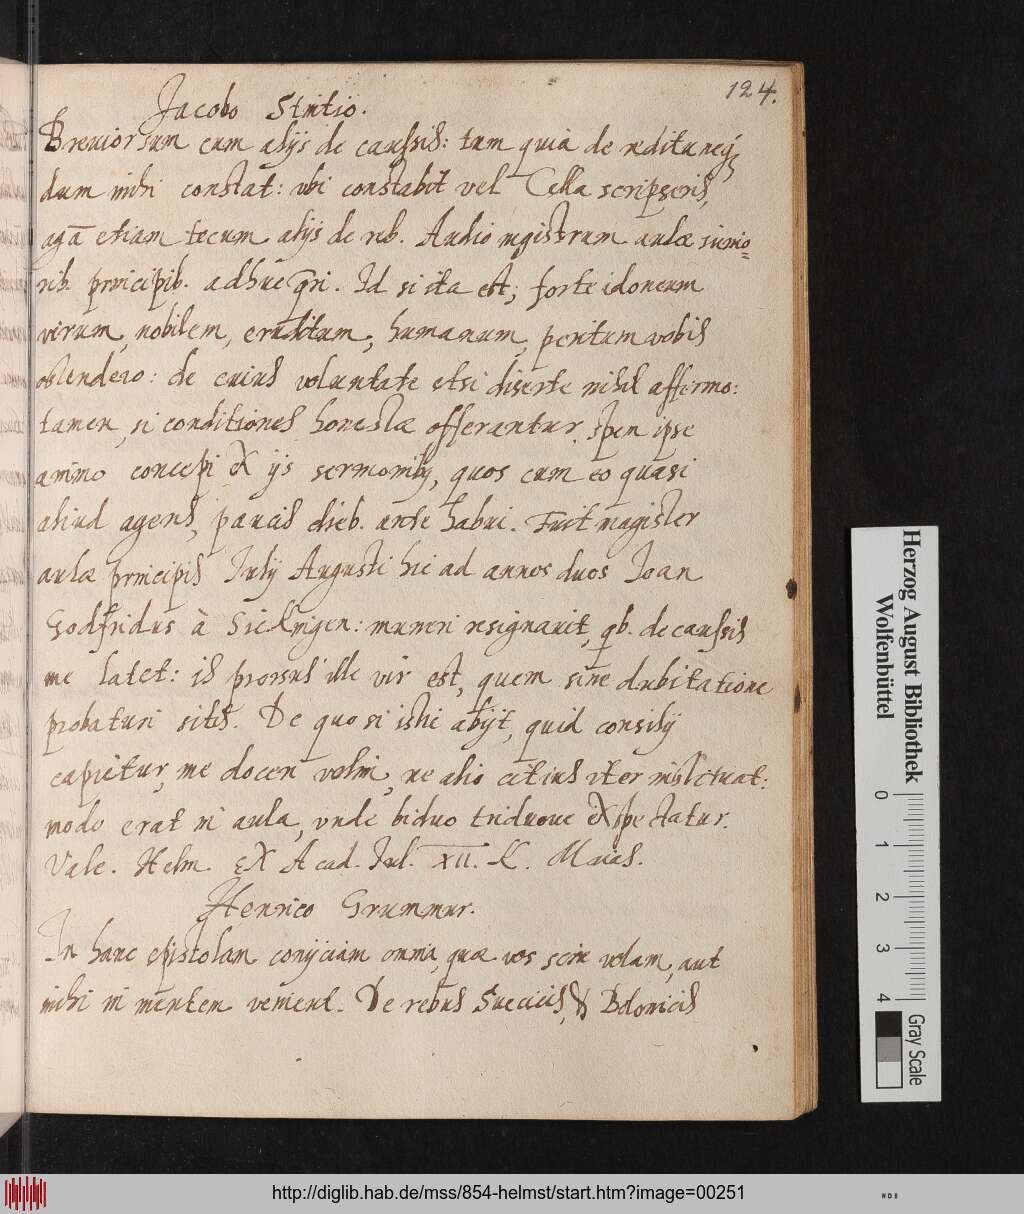 124.
Jacobo Stritio.
Breviorsum cum alijs de caussis: tum quia de reditu nec
dum mihi constat: ubi constabit vel Cella scripseris,
agā etiam tecum alijs de reb. Audio magistrum aulæ iunio=
rib. principib. adhuc q̄ri. Id si ita est, forte idoneum
virum, nobilem, eruditum, humanum, peritum vobis
ostendero: de cuius voluntate etsi diserte nihil affermo:
tamen, si conditiones honestæ offerantur, spem ipse
animo concepi ex ijs sermonibꝫ, quos cum eo quasi
aliud agens, paucis dieb. ante habui. Fuit magister
aulæ principis Iulij Augusti hic ad annos duos Ioan
Godfridus à Sickingen: muneri resignavit, qb. de caussis
me latet: is prorsus ille vir est, quem sine dubitatione
probaturi sitis. De quo si istic abijt, quid consilij
capietur, me doceri velim, ne alio citius iter
modo erat in aula, vnde biduo triduove exspectatur.
Vale. Helm. Ex Acad. Iul. XII. K. Maias.
Henrico Grummer.
In hanc epistolam conijciam omnia, quæ vos scire volam, aut
mihi in mentem venient. De rebus Suecicis, & Polonicis
Herzog August Bibliothek
Wolfenbüttel
0 1 2 3 4
Gray Scale
http://diglib.hab.de/mss/854-helmst/start.htm?image=00251
WDB